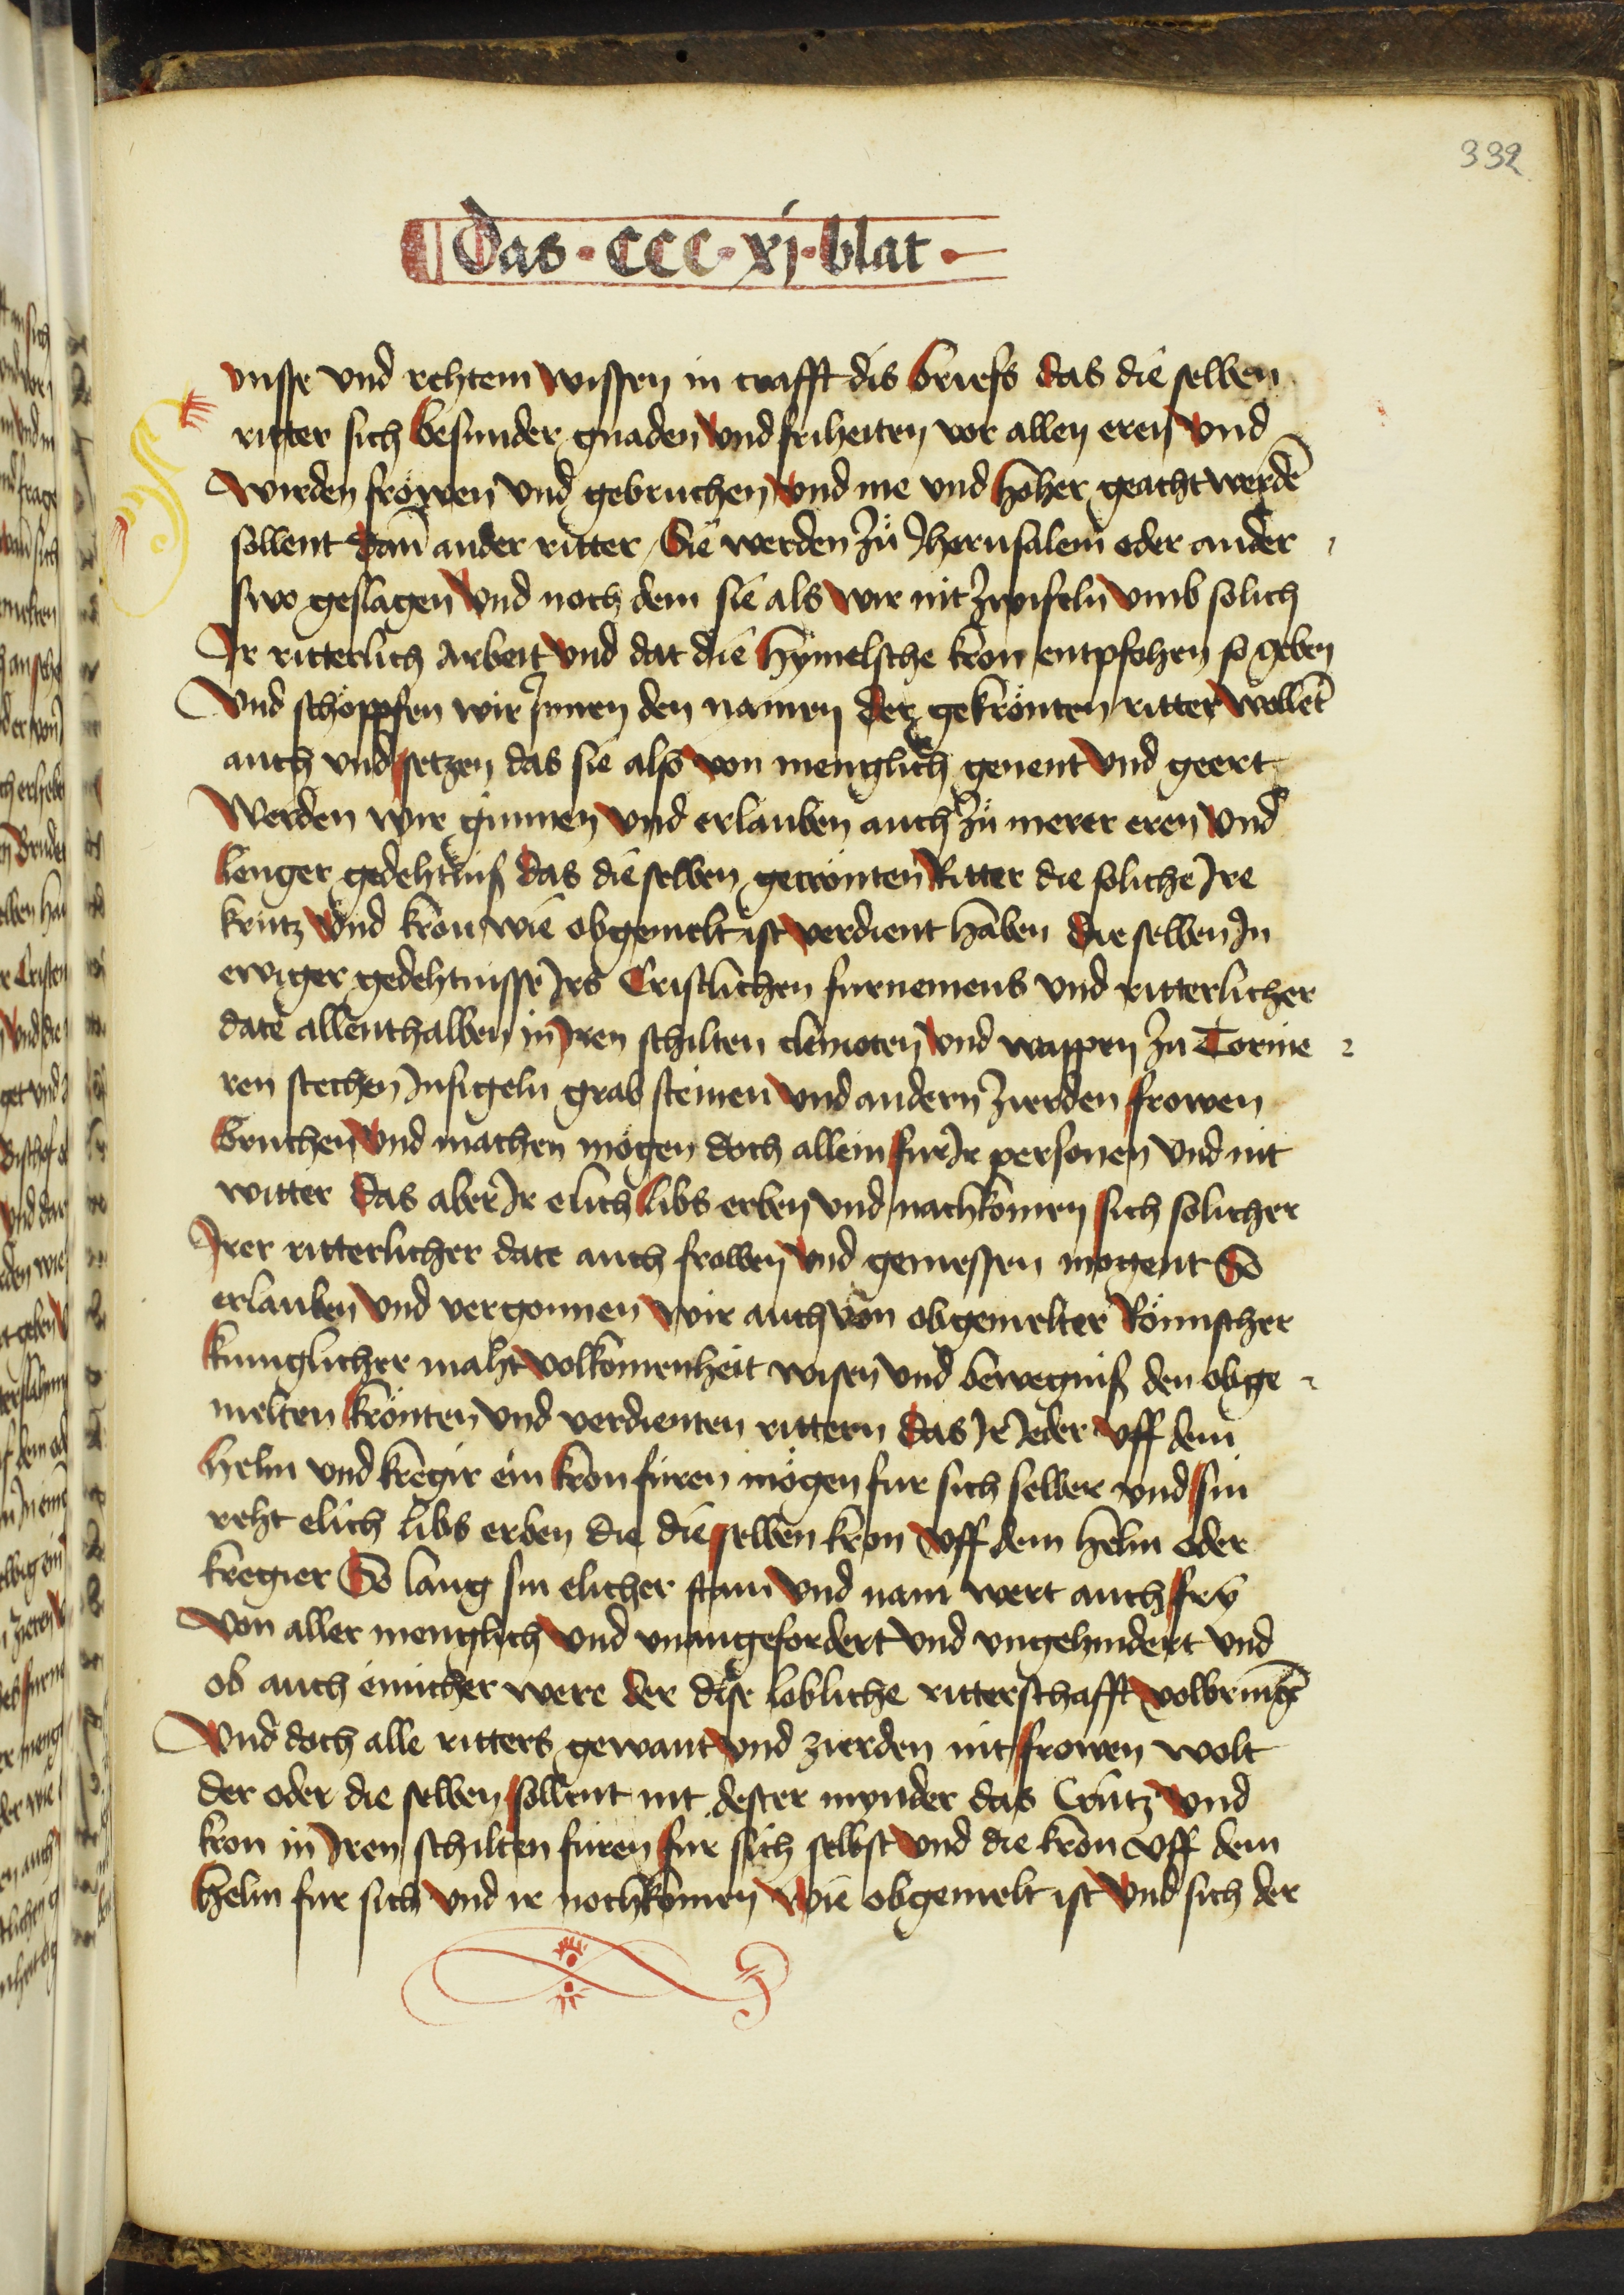 332
Das · CCC · xj · blat ·
vnsse vnd rehtem wissen in crafft dis briefs das die selben
ritter sich besunder gnaden vnd friheiten vor allen eren vnd
wirden fröwen vnd gebruchen vnd me vnd höher geacht werdē
sollent dan̄ ander ritter / Sie werden zů Jherusalem oder ander
swo geslagen vnd noch dem sie als wir nit zwifeln vmb solich
Jr ritterlich arbeit vnd dat die hymelsche kron entpfohen so geben
Vnd schöppfen wir Jnnen den namen der gekrönten ritter wöllēt
auch vnd setzen das sie also von menglich genent vnd geert
Werden wir günnen vnd erlauben auch zů merer eren vnd
lenger gedehtniß das die selben gecrönten Ritter die soliche Jre
krütz vnd kron wie obgemelt ist verdient haben die selben Jn
ewiger gedehtnisse Jrs Cristlichen furnemens vnd ritterlicher
date allenthalben in Jren schilten cleinoten vnd wappen zu Tornie
ren stechen Jnsigeln grab steinen vnd andern zierden frowen
bruchen vnd machen mögen doch allein fur Jr personen vnd nit
witter das aber Jr elich libs erben vnd nachkomen sich solicher
Jrer ritterlicher date auch frowen vnd geniessen mogent So
erlauben vnd vergonnen wir auch von obgemelter Römischer
kunglicher maht volkomenheit wisen vnd bewegniß den obge
melten krönten vnd verdienten rittern das Jr Jeder vff dem
helm vnd kregir ein kron füren mögen fur sich selber vnd sin
reht elich libs erben die die selben kron vff dem helm oder
kregier So lang sin elicher stam vnd nam wert auch fry
von aller menglich vnd vnangefordert vnd vngehindert vnd
ob auch einicher were der dise lobliche ritterschafft volbringē
Vnd doch alle ritters gewant vnd zierden nit frowen wolt
der oder die selben sollent nit dester mynder das Crütz vnd
kron in Jren schilten füren fur sich selbst vnd die kron vff dem
helm fur sich vnd ir nochkomen wie obgemelt ist vnd sich der